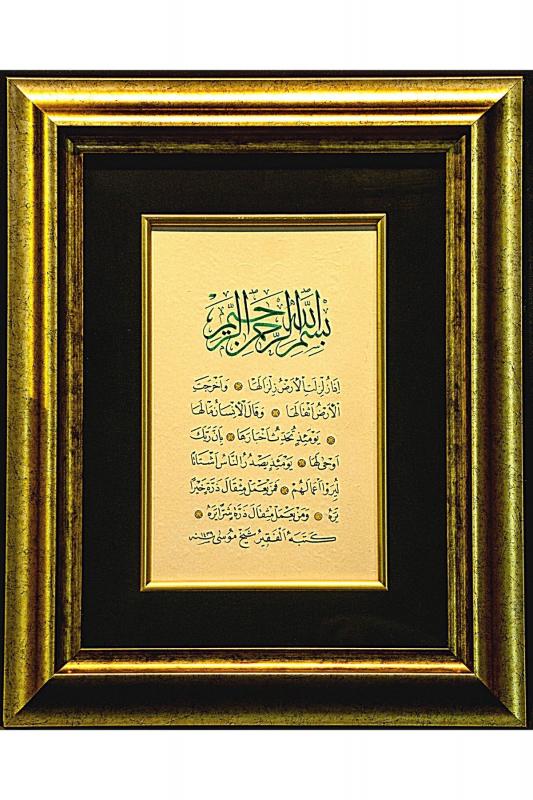 بِسْمِ اللّٰهِ الرَّحْمٰنِ الرَّحِيمِ
اِذَا زُلْزِلَتِ الْاَرْضُ زِلْزَالَهَا ۞ وَاَخْرَجَتِ
الْاَرْضُ اَثْقَالَهَا ۞ وَقَالَ الْاِنْسَانُ مَالَهَا
۞ يَوْمَئِذٍ تُحَدِّثُ اَخْبَارَهَا ۞ بِاَنَّ رَبَّكَ
اَوْحٰى لَهَا ۞ يَوْمَئِذٍ يَصْدُرُ النَّاسُ اَشْتَاتًا
لِيُرَوْا اَعْمَالَهُمْ ۞ فَمَنْ يَعْمَلْ مِثْقَالَ ذَرَّةٍ خَيْرًا
يَرَهُ ۞ وَمَنْ يَعْمَلْ مِثْقَالَ ذَرَّةٍ شَرًّا يَرَهُ ۞
كَتَبَهُ الْفَقِيرُ شَيْخ مُوسٰى سنه